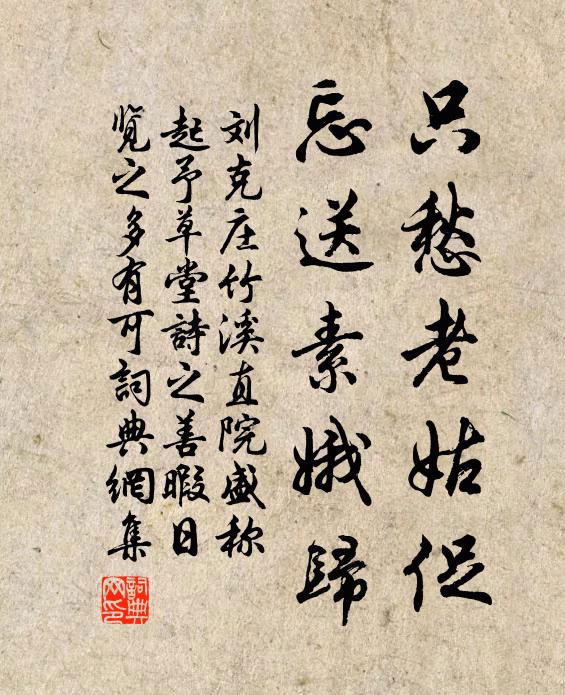 只愁老姑促
忘送素娥歸
刘克庄竹溪直院盛称
起予草堂詩之善暇日
覽之多有可詞典網集